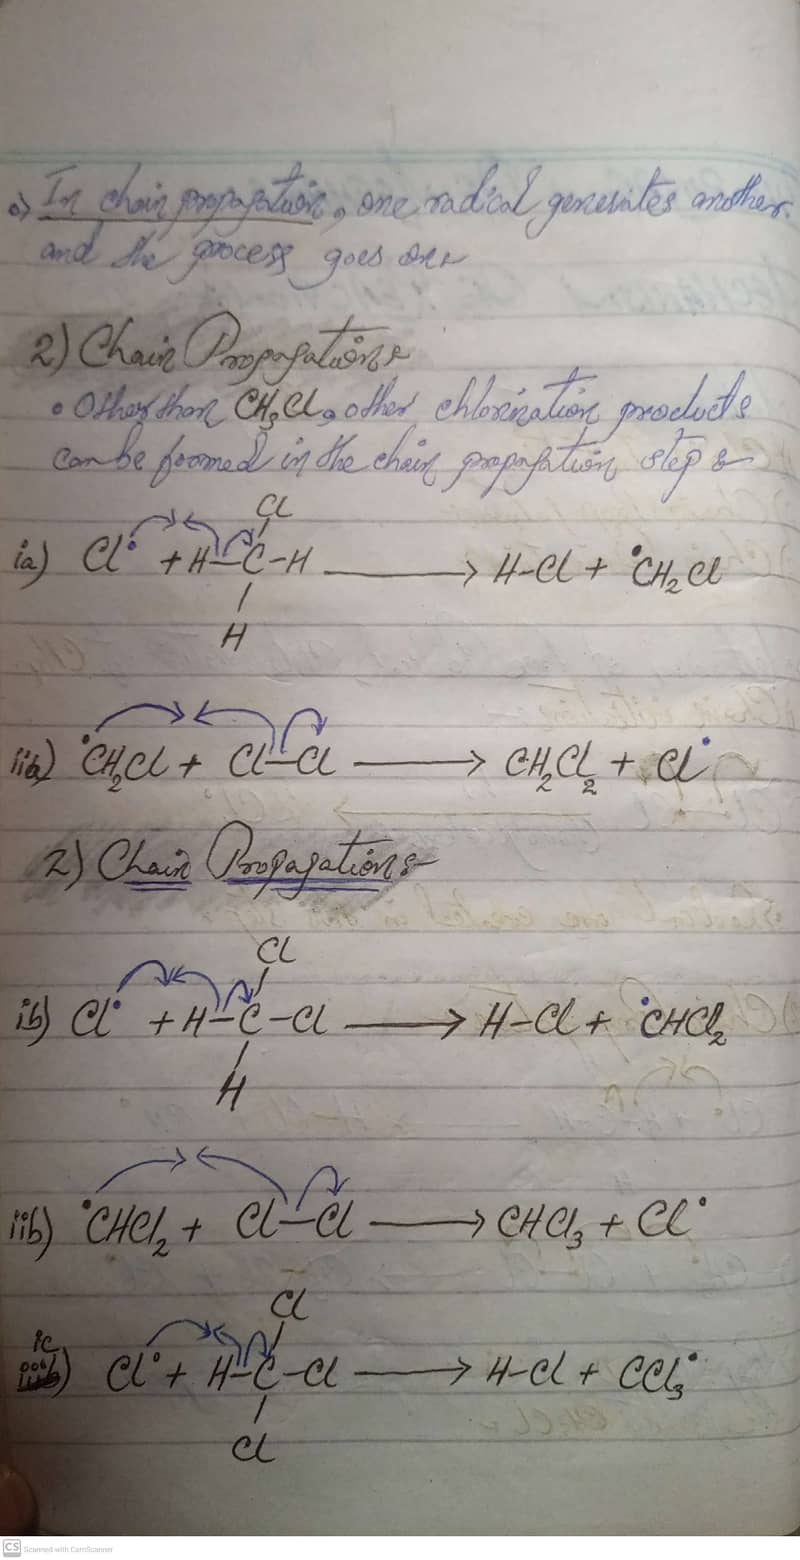 o) In chain propagation, one radical generates another
and the process goes on:-
2) Chain Propagation:-
• Other than CH₃Cl, other chlorination products
can be formed in the chain propagation step:-
Cl
ia) Cl• + H-C-H → H-Cl + •CH₂Cl
H
iia) •CH₂Cl + Cl-Cl → CH₂Cl₂ + Cl•
2) Chain Propagation:-
Cl
ib) Cl• + H-C-Cl → H-Cl + •CHCl₂
H
iib) •CHCl₂ + Cl-Cl → CHCl₃ + Cl•
Cl
ic) Cl• + H-C-Cl → H-Cl + CCl₃•
Cl
CS Scanned with CamScanner